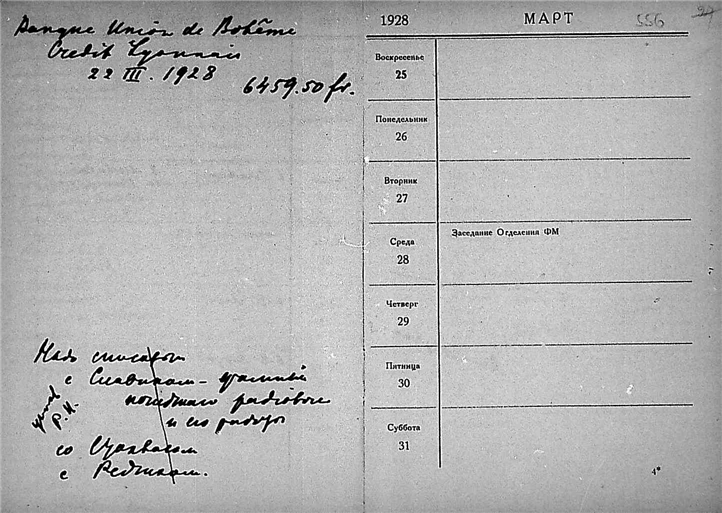 Banque Union de Bohême
Credit Lyonnais
22 III. 1928
6459.50 fr.
Надо списаться
с Славиком -
и его работы
со
с
Р. И.
1928
МАРТ
556
Воскресенье
25
Понедельник
26
Вторник
27
Среда
28
Заседание Отделения ФМ
Четверг
29
Пятница
30
Суббота
31
4*